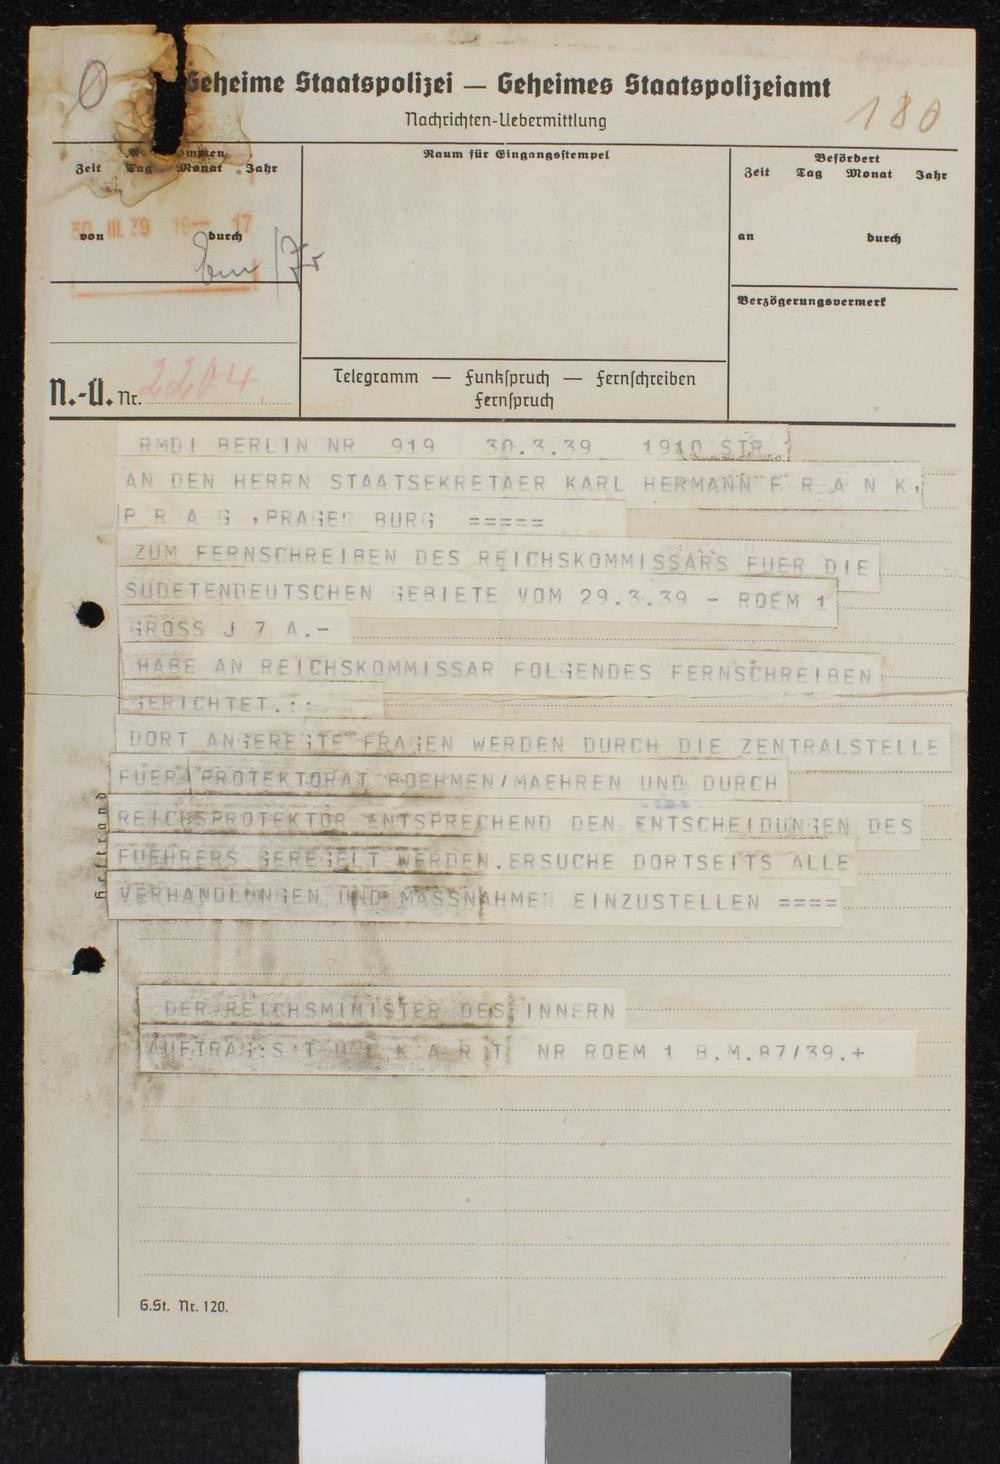 0
Geheime Staatspolizei — Geheimes Staatspolizeiamt
180
Nachrichten-Uebermittlung
Zeit Tag Monat Jahr
30 III. 39 19 17
von durch
Raum für Eingangsstempel
Befördert
Zeit Tag Monat Jahr
an durch
Verzögerungsvermerk
N.-Ü. Nr. 2204
Telegramm — Funkspruch — Fernschreiben
Fernspruch
RMDI BERLIN NR 919 30.3.39 1910 STR
AN DEN HERRN STAATSEKRETAER KARL HERMANN F R A N K,
P R A G ,PRAGER BURG =====
ZUM FERNSCHREIBEN DES REICHSKOMMISSARS FUER DIE
SUDETENDEUTSCHEN GEBIETE VOM 29.3.39 - ROEM 1
GROSS J 7 A.-
HABE AN REICHSKOMMISSAR FOLGENDES FERNSCHREIBEN
GERICHTET.::
DORT ANGEREGTE FRAGEN WERDEN DURCH DIE ZENTRALSTELLE
FUER PROTEKTORAT BOEHMEN/MAEHREN UND DURCH
REICHSPROTEKTOR ENTSPRECHEND DEN ENTSCHEIDUNGEN DES
FUEHRERS GEREGELT WERDEN.ERSUCHE DORTSEITS ALLE
VERHANDLUNGEN UND MASSNAHMEN EINZUSTELLEN ====
Heftrand
DER REICHSMINISTER DES INNERN
AUFTRAG:S T U C K A R T NR ROEM 1 B.M.87/39.+
G.St. Nr. 120.